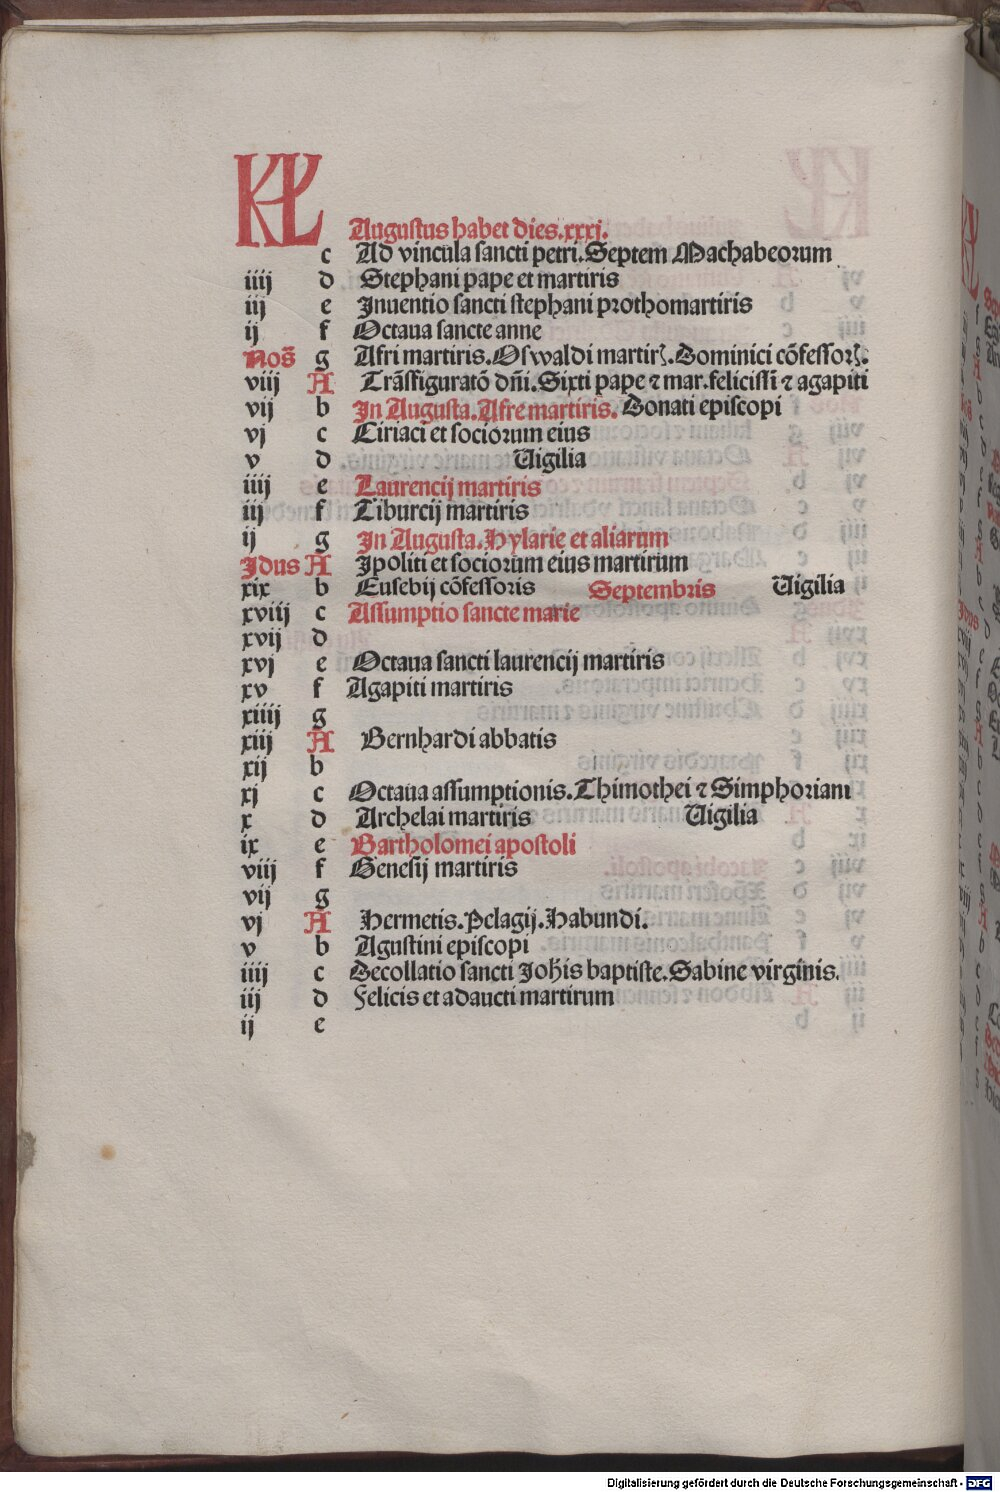 KL Augustus habet dies.xxxj.
c Ad vincula sancti petri.Septem Machabeorum
iiij d Stephani pape et martiris
iij e Inuentio sancti stephani prothomartiris
ij f Octaua sancte anne
Noñ g Afri martiris.Oswaldi martirꝫ.Dominici cōfessorꝫ.
viij A Trāsfiguratō dñi.Sixti pape ⁊ mar.felicissi ⁊ agapiti
vij b In Augusta.Afre martiris. Donati episcopi
vj c Ciriaci et sociorum eius
v d Uigilia
iiij e Laurencij martiris
iij f Tiburcij martiris
ij g In Augusta.Hylarie et aliarum
Idus A Ipoliti et sociorum eius martirum
xix b Eusebij cōfessoris Septembris Uigilia
xviij c Assumptio sancte marie
xvij d
xvj e Octaua sancti laurencij martiris
xv f Agapiti martiris
xiiij g
xiij A Bernhardi abbatis
xij b
xj c Octaua assumptionis.Thimothei ⁊ Simphoriani
x d Archelai martiris Uigilia
ix e Bartholomei apostoli
viij f Genesij martiris
vij g
vj A Hermetis.Pelagij.Habundi.
v b Agustini episcopi
iiij c Decollatio sancti Johis baptiste.Sabine virginis.
iij d Felicis et adaucti martirum
ij e
Digitalisierung gefördert durch die Deutsche Forschungsgemeinschaft - DFG